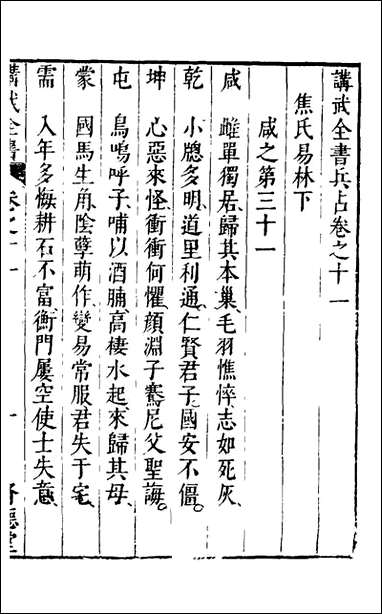 講武全書兵占卷之十一
焦氏易林下
咸之第三十一
咸 雌單獨居、歸其本巢、毛羽憔悴志如死灰、
乾 小牕多明、道里利通、仁賢君子、國安不僵。
坤 心惡來怪、衝衝何懼、顔淵子騫、尼父聖誨。
屯 鳥鳴呼子、哺以酒脯、高棲水起、來歸其母、
蒙 國馬生角、陰孽萌作、變易常服君失于宅、
需 入年多悔、耕石不富、衡門屢空使士失意、
講武全書 卷之十一 一